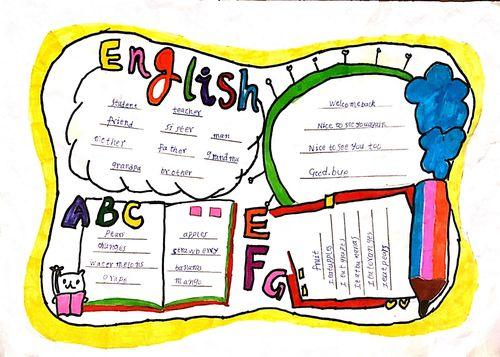 English
student teacher
friend sister man
mother father grandma
grandpa brother
Welcome back
Nice to see you again
Nice to see you too
Good. bye
ABC
Pear
oranges
watermelons
Grape
apples
strawberry
bananas
mango
EFG
fruit
I eat apples
I eat grapes
I eat bananas
I eat oranges
I eat pears